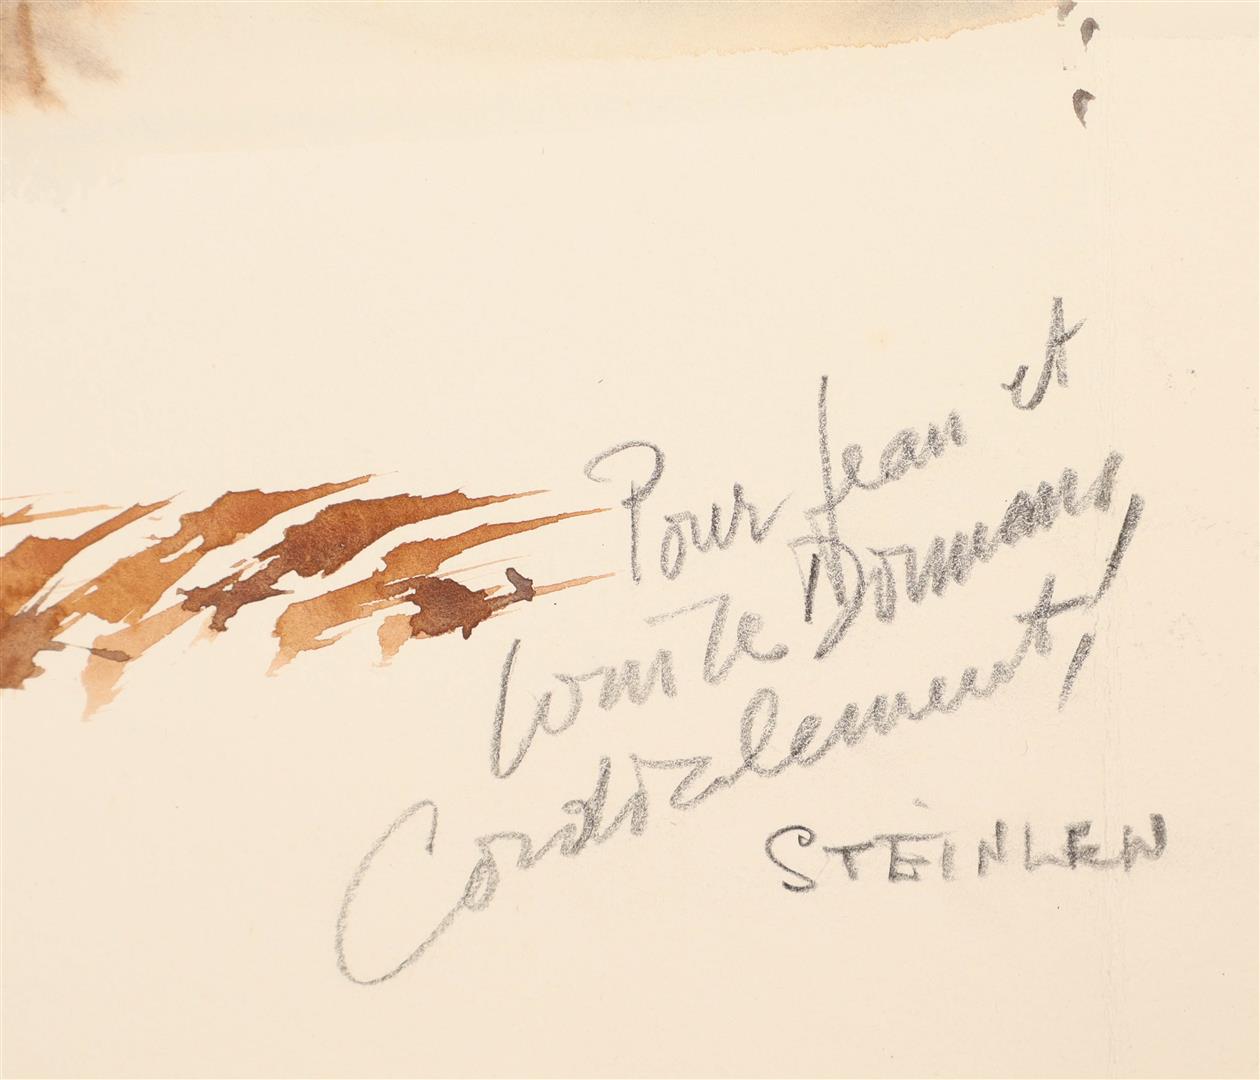 Pour Jean et
Dormans,
Cordialement,
STEINLEN